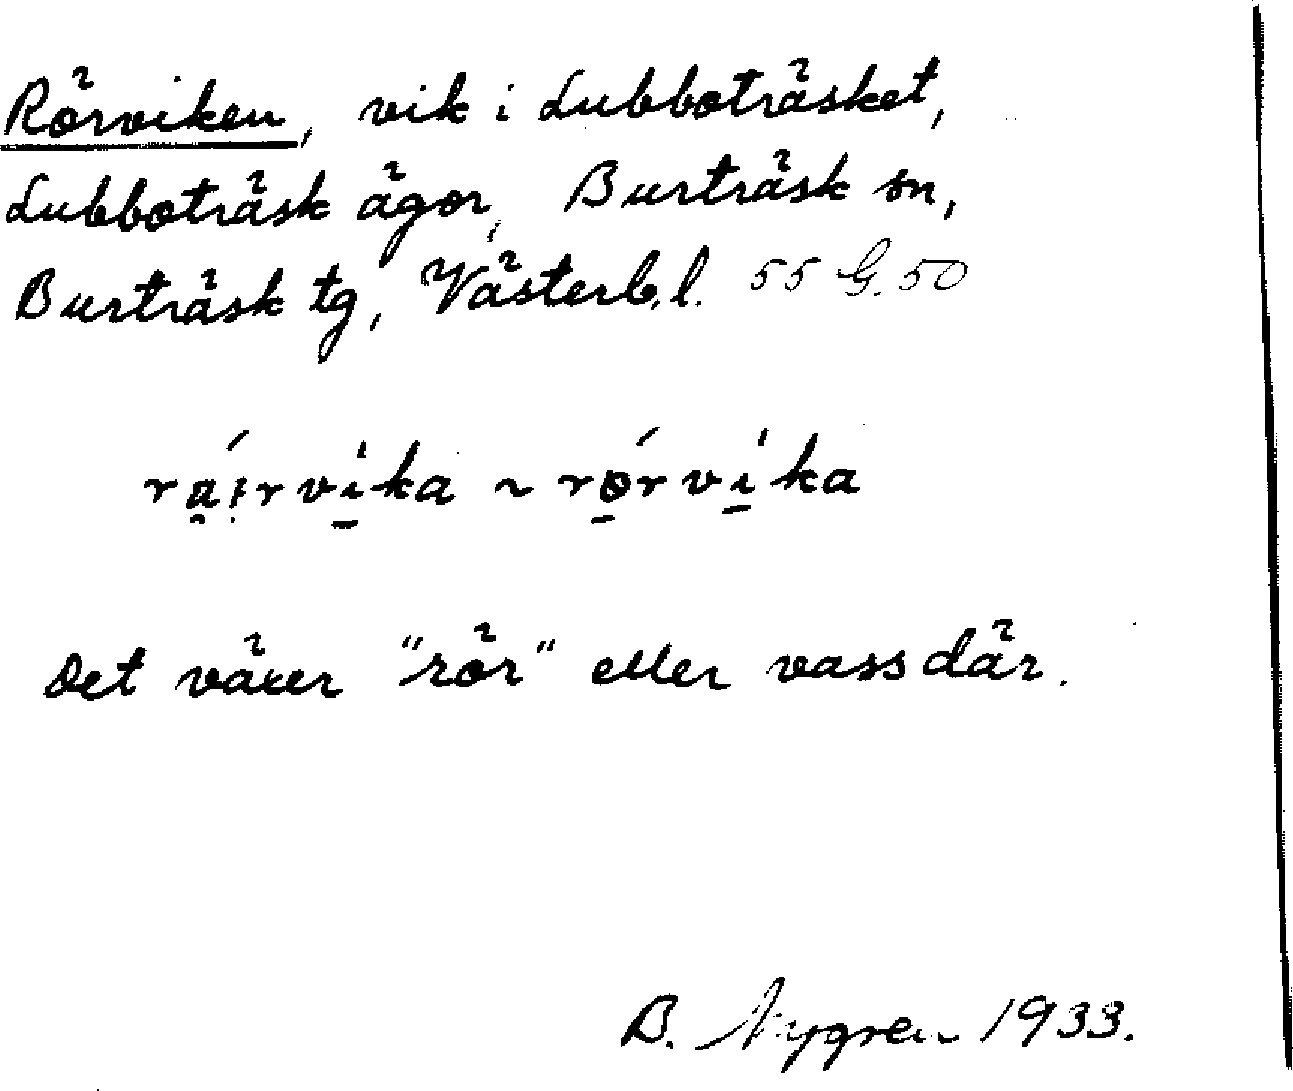 Rörviken, vik i Lubboträsket,
Lubboträsk ägor, Burträsk sn,
Burträsk tg, Västerb. l. 55 G. 50
rạ́i̯rvi̱̍ka ~ rǿ̱rvi̱̍ka
Det växer "rör" eller vass där.
B. Nygren 1933.